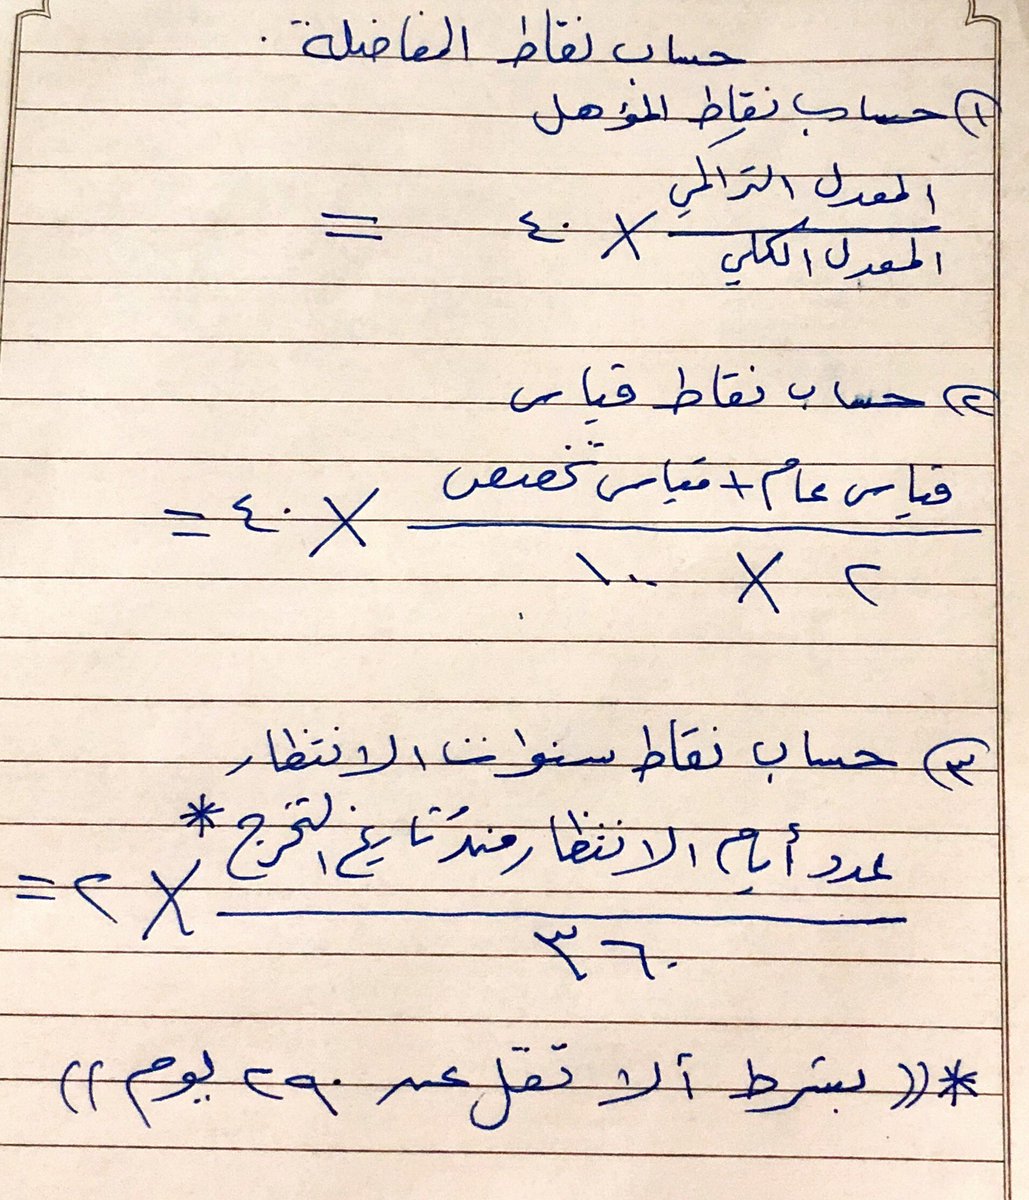 حساب نقاط المفاضلة .
١) حساب نقاط المؤهل
المعدل التراكمي
× ٤٠ =
المعدل الكلي
٢) حساب نقاط قياس
قياس عام + قياس تخصص
× ٤٠ =
٢ × ١٠٠
٣) حساب نقاط سنوات الانتظار
عدد أيام الانتظار منذ تاريخ التخرج *
× ٢ =
٣٦٠
* (( بشرط ألا تقل عن ٢٩٠ يوم ))